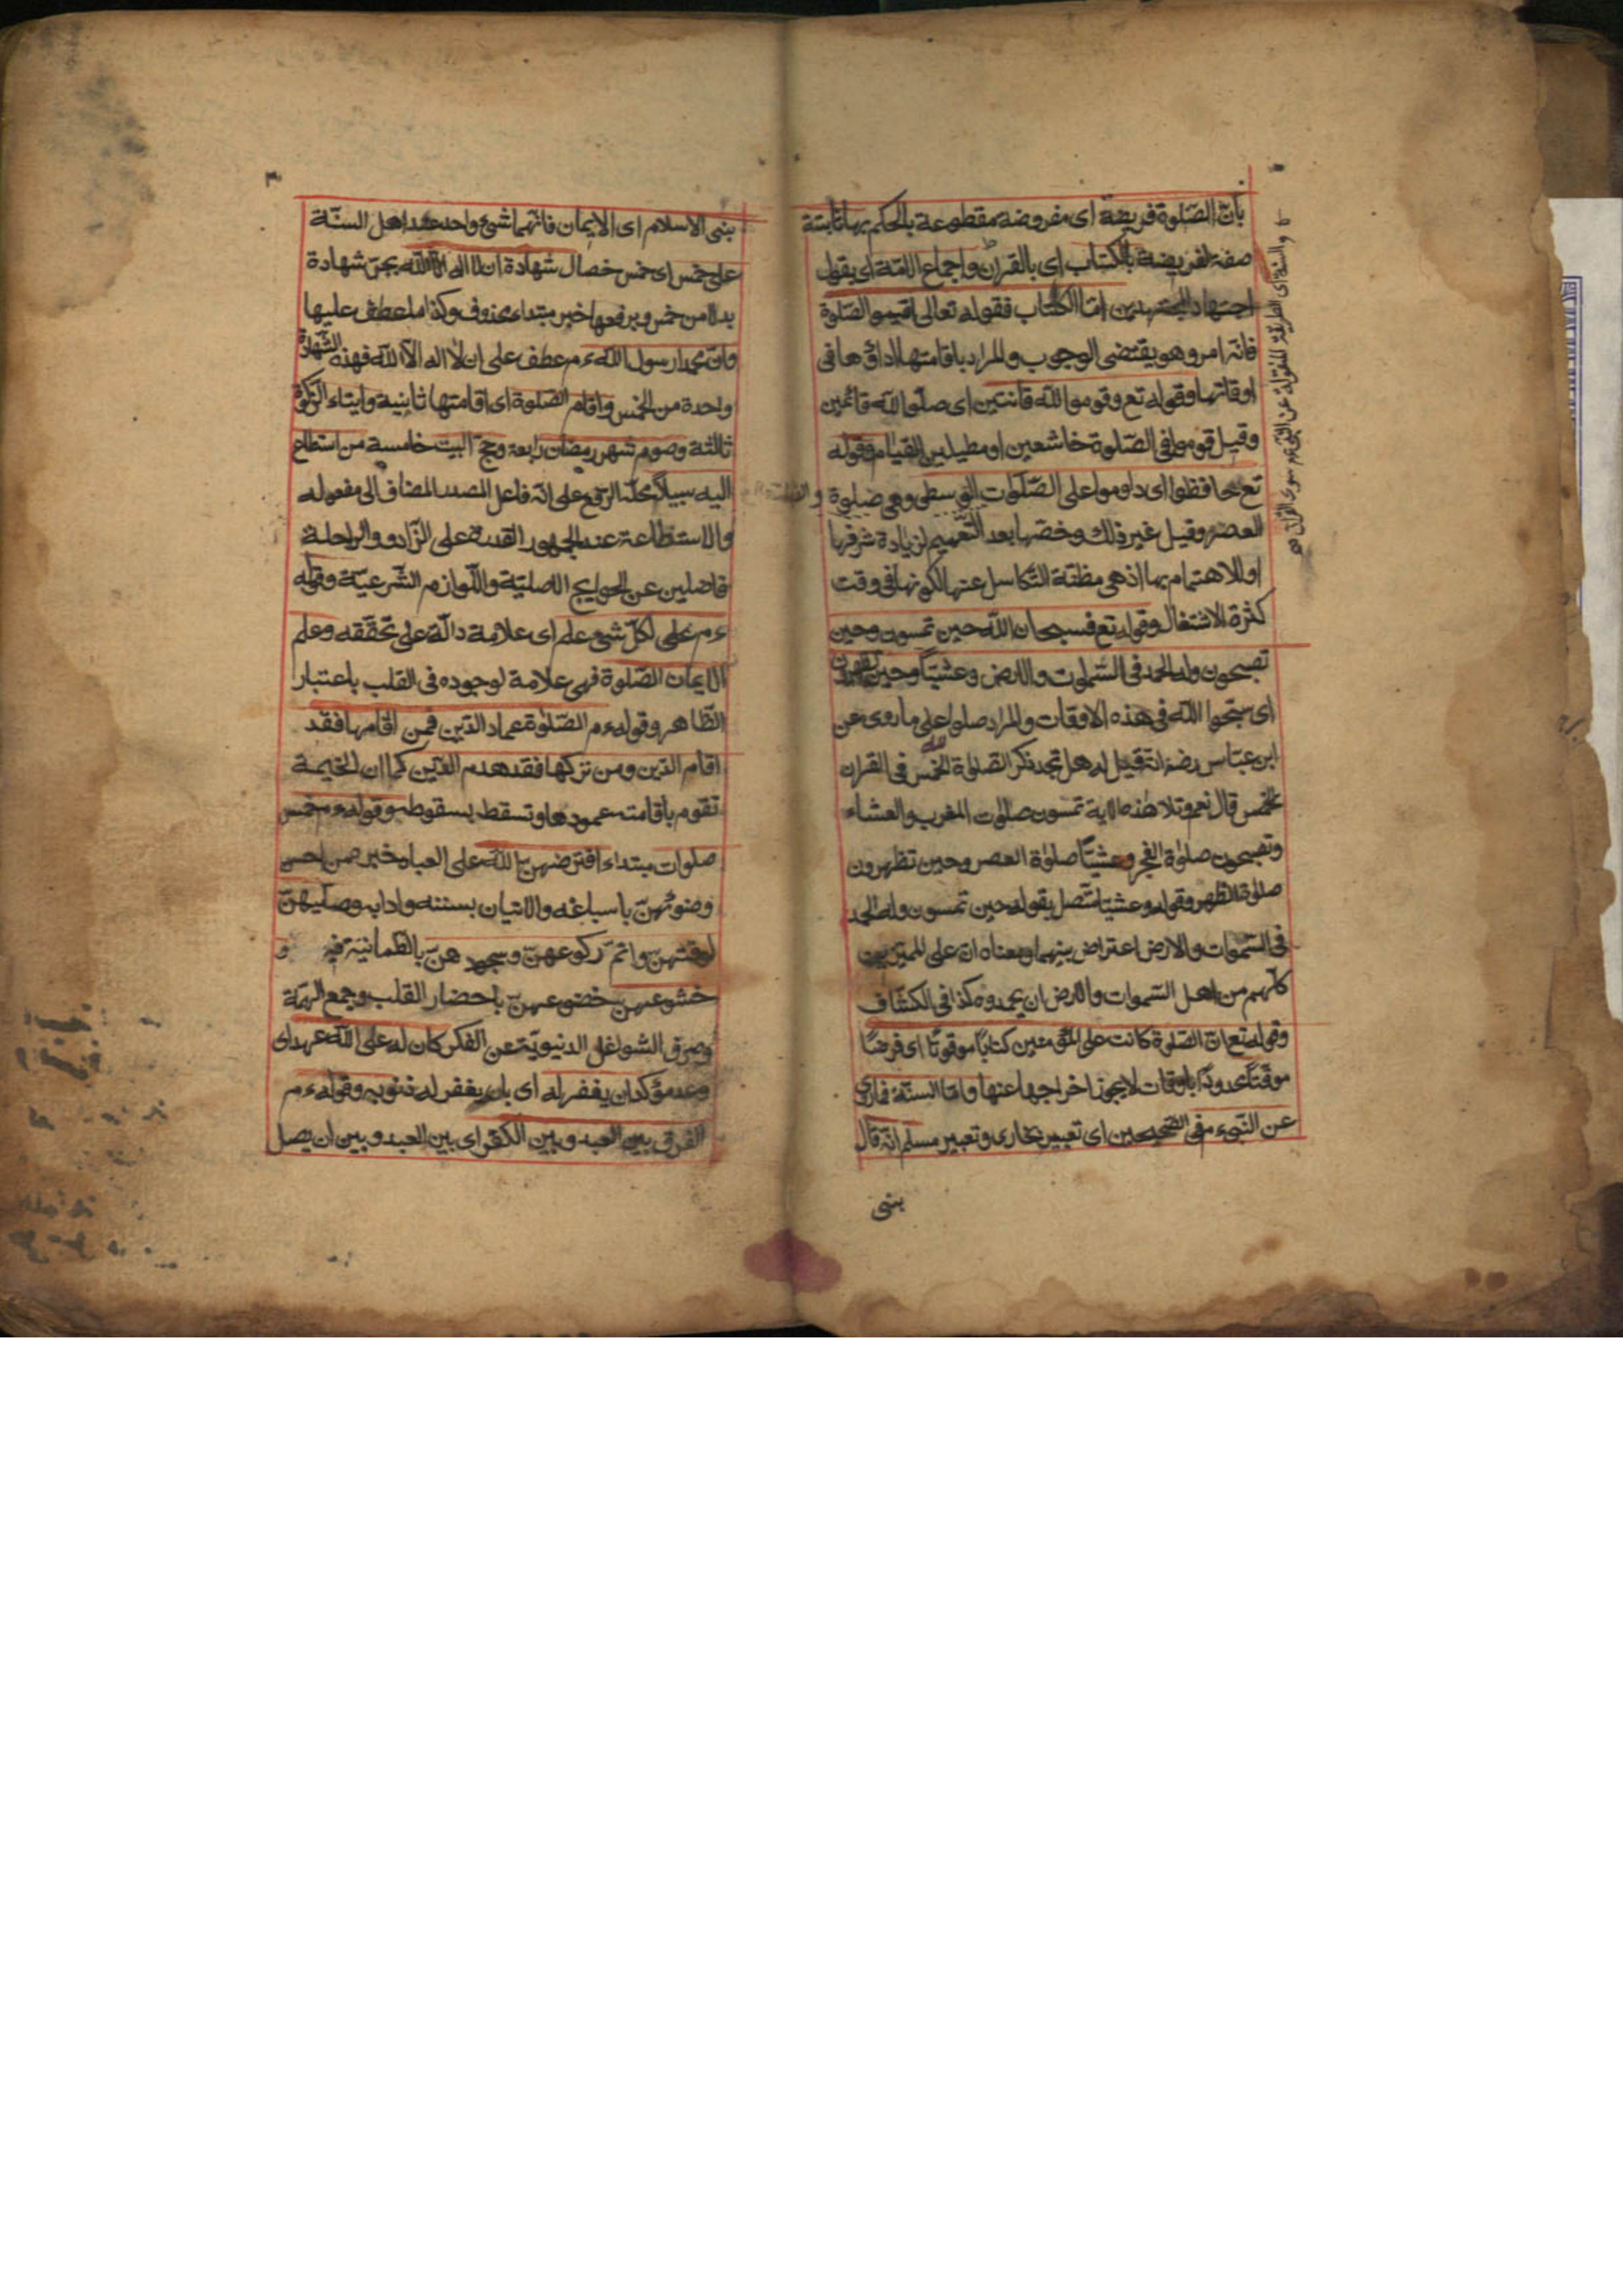 بأنّ الصّلوة فريضة اى مفروضة مقطوعة بالحكم بها ثابتة
صفة لفريضة بالكتاب اى بالقرآن واجماع الامّة اى بقول
اجتهاد المجتهدين امّا الكتاب فقوله تعالى اقيموا الصّلوة
فانّه امر وهو يقتضى الوجوب والمراد باقامتها اداؤها فى
اوقاتها وقوله تع وقوموا لله قانتين اى صلّوا لله قائمين
وقيل قوموا فى الصّلوة خاشعين او مطيلين القيام وقوله
تع حافظوا اى داوموا على الصّلوات الوسطى وهى صلوة
العصر وقيل غير ذلك وخصّها بعد التّعميم لزيادة شرفها
او للاهتمام بها اذ هى مظنّة التّكاسل عنها لكونها فى وقت
كثرة الاشتغال وقوله تع فسبحان الله حين تمسون وحين
تصبحون وله الحمد فى السّموات والارض وعشيّاً وحين تظهرون
اى سبّحوا الله فى هذه الاوقات والمراد صلوا على ما روى عن
ابن عبّاس رضه انّه قيل له هل تجد ذكر الصّلوة الخمس فى القران
قال نعم وتلا هذه الاية تمسون صلوات المغرب والعشاء
وتصبحون صلوة الفجر وعشيّاً صلوة العصر وحين تظهرون
صلوة الظهر وقوله وعشيّا متّصل بقوله حين تمسون وله الحمد
فى السّموات والارض اعتراض بينهما ومعناه انّ على المميّزين
كلّهم من اهل السّموات والارض ان يحمدوه كذا فى الكشّاف
وقوله تع انّ الصّلوة كانت على المؤمنين كتاباً موقوتاً اى فرضاً
موقّتاً محدوداً باوقات لا يجوز اخراجها عنها وامّا السنّة فما روى
عن النّبىّ ءم فى الصّحيحين اى تعبير بخارى وتعبير مسلم انّه قال
بنى
والسنة اى الطريقة المنقولة عن النبى ءم سوى القرآن
٣
بنى الاسلام اى الايمان فانّهما شئ واحد عند اهل السنّة
على خمس اى خمس خصال شهادة ان لا اله الّا الله بجرّ شهادة
بدلا من خمس وبرفعها خبر مبتداء محذوف وكذا ما عطف عليها
وانّ محمّدا رسول الله ءم عطف على ان لا اله الّا الله فهذه الشّهادة
واحدة من الخمس واقام الصّلوة اى اقامتها ثانية وايتاء الزّكوة
ثالثة وصوم شهر رمضان رابعة وحجّ البيت خامسة من استطاع
اليه سبيلاً محلّه الرّفع على انّه فاعل المصدر المضاف الى مفعوله
والاستطاعة عند الجمهور القدرة على الزّاد والراحلة
فاضلين عن الحوايج الاصليّة واللّوازم الشّرعيّة وقوله
ءم على لكلّ شئ علم اى علامة دالّة على تحقّقه وعلم
الايمان الصّلوة فهى علامة لوجوده فى القلب باعتبار
الظّاهر وقوله ءم الصّلوة عماد الدّين فمن اقامها فقد
اقام الدّين ومن تركها فقد هدم الدّين كما ان الخيمة
تقوم باقامة عمودها وتسقط بسقوطه وقوله ءم خمس
صلوات مبتداء افترضهنّ الله على العباد خبر فمن احسن
وضوئهنّ باسباغه والاتيان بسننه وادابه وصلّيهنّ
لوقتهنّ واتمّ ركوعهنّ وسجودهنّ بالطمانية فيه و
خشوعهنّ خضوعهنّ باحضار القلب وجمع الهمّة
وصرف الشواغل الدنيويّة عن الفكر كان له على الله عهد اى
وعد مؤكد ان يغفر له اى بان يغفر له ذنوبه وقوله ءم
الفرق بين العبد وبين الكفر اى بين العبد وبين ان يصل